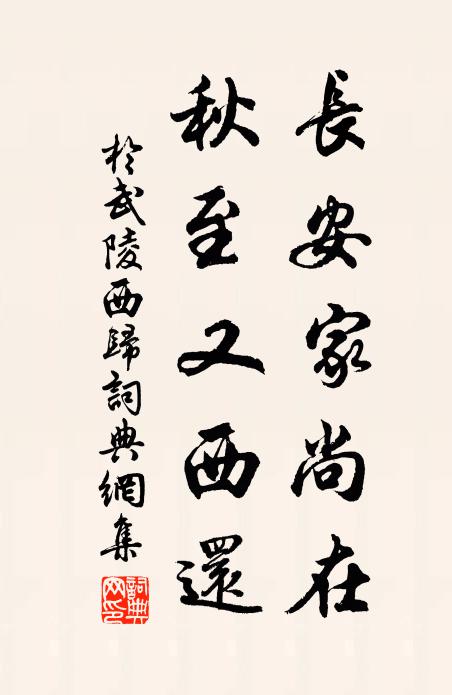 長安家尚在
秋至又西還
於武陵西歸詞典網集
詞典
网印